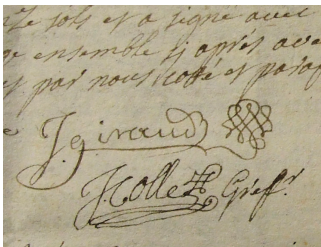 sols et a signé avec
ensemble si après avo
par nous cotté et parap
J. giraud
J Collet Greff.r